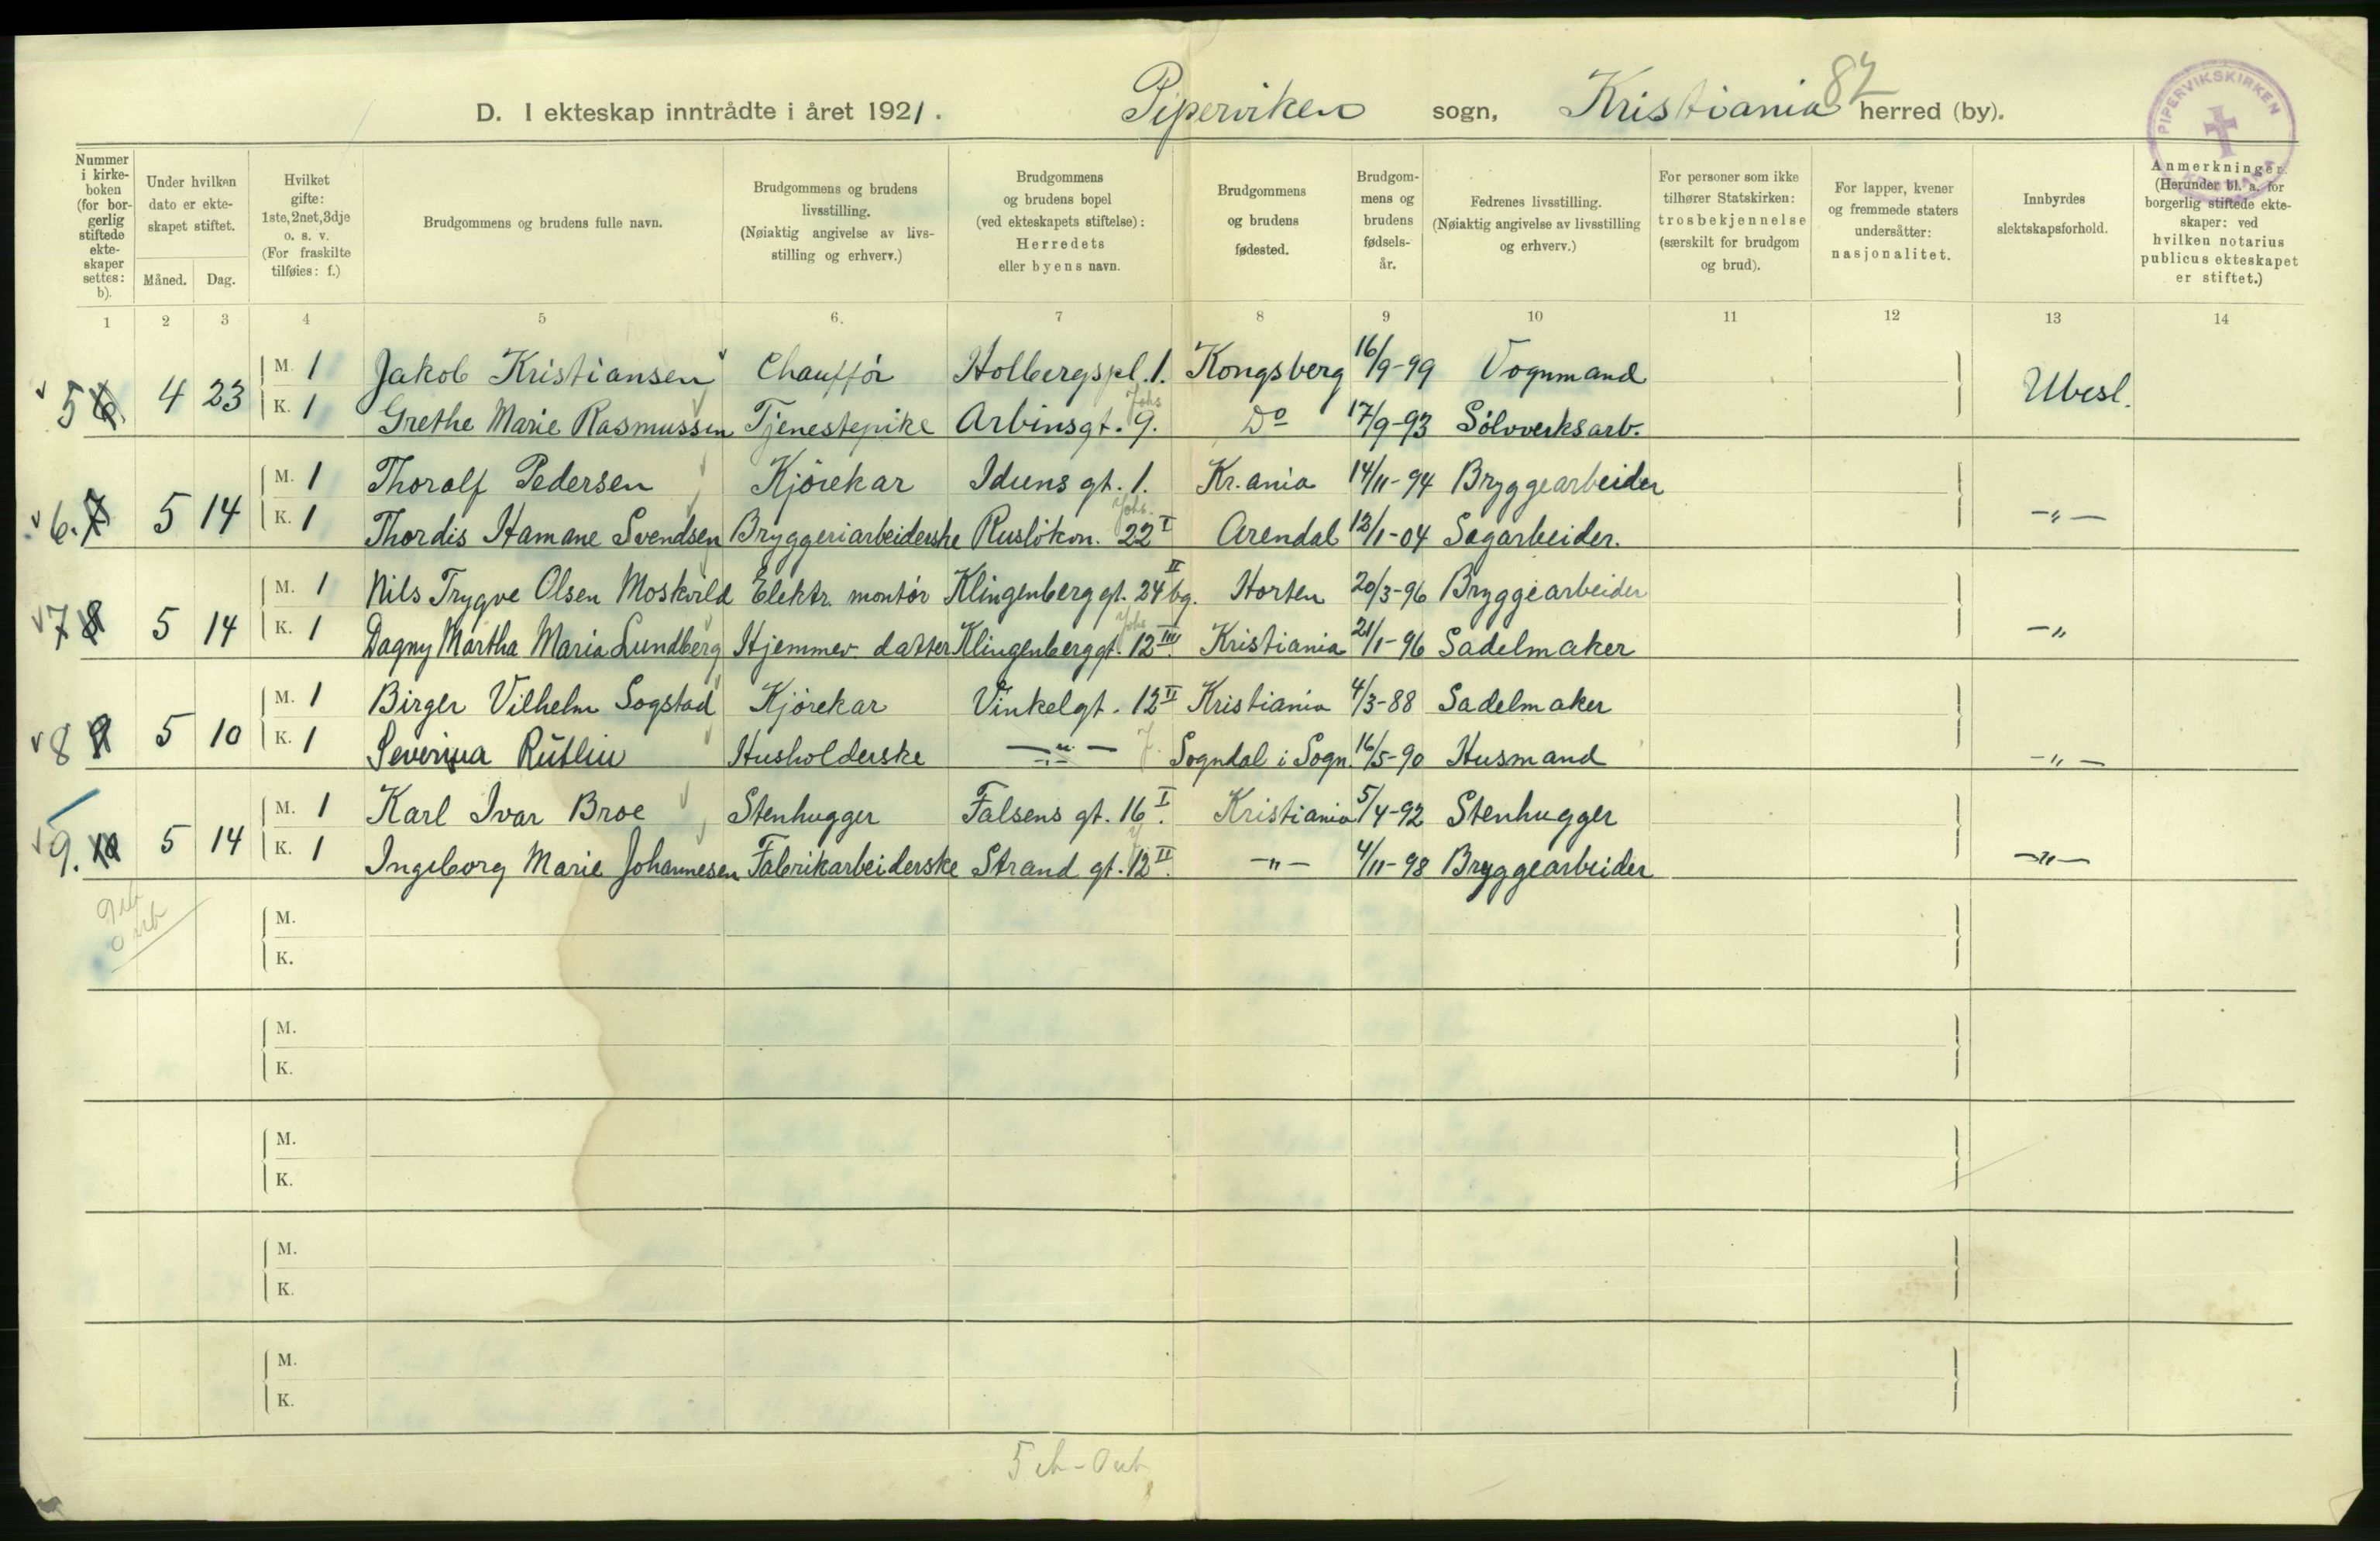 82
D. I ekteskap inntrådte i året 1921. Piperviken sogn, Kristiania herred (by).
PIPERVIKSKIRKEN
Nummer i kirkeboken (for borgerlig stiftede ekteskaper settes: b).
Under hvilken dato er ekteskapet stiftet.
Måned. Dag.
Hvilket gifte: 1ste, 2net, 3dje o. s. v. (For fraskilte tilføies: f.)
Brudgommens og brudens fulle navn.
Brudgommens og brudens livsstilling. (Nøiaktig angivelse av livsstilling og erhverv.)
Brudgommens og brudens bopel (ved ekteskapets stiftelse): Herredets eller byens navn.
Brudgommens og brudens fødested.
Brudgommens og brudens fødselsår.
Fedrenes livsstilling. (Nøiaktig angivelse av livsstilling og erhverv.)
For personer som ikke tilhører Statskirken: trosbekjennelse (særskilt for brudgom og brud).
For lapper, kvener og fremmede staters undersåtter: nasjonalitet.
Innbyrdes slektskapsforhold.
Anmerkninger. (Herunder bl. a. for borgerlig stiftede ekteskaper: ved hvilken notarius publicus ekteskapet er stiftet.)
1 2 3 4 5 6. 7 8 9 10 11 12 13 14
5 6. 4 23 M. 1 Jakob Kristiansen Chauffør Holbergs pl. 1. Kongsberg 16/9-99 Vognmand Ubesl.
K. 1 Grethe Marie Rasmussen Tjenestepike Arbinsgt. 9. Do 17/9-93 Sølvverksarb.
Johs
6. 7 5 14 M. 1 Thoralf Pedersen Kjørekar Iduns gt. 1. Kr.ania 14/11-94 Bryggearbeider -"-
K. 1 Thordis Hamane Svendsen Bryggeriarbeiderske Ruseløkvn. 22 I Arendal 12/1-04 Sagarbeider.
Johs.
7 8 5 14 M. 1 Nils Trygve Olsen Moskvild Elektr. montør Klingenberg gt. 24 II bg. Horten 20/3-96 Bryggearbeider -"
K. 1 Dagny Martha Maria Lundberg Hjemmev. datter Klingenberggt. 12 III Kristiania 21/1-96 Sadelmaker
Johs
8 9 5 10 M. 1 Birger Vilhelm Sogstad Kjørekar Vinkelgt. 12 II Kristiania 4/3-88 Sadelmaker
K. 1 Severina Rutlin Husholderske -"- Sogndal i Sogn. 16/5-90 Husmand -"-
9. 10 5 14 M. 1 Karl Ivar Broe Stenhugger Falsens gt. 16 I. Kristiania 5/4-92 Stenhugger
K. 1 Ingeborg Marie Johannesen Fabrikarbeiderske Strand gt. 12 II. -"- 4/11-98 Bryggearbeider -"-
M.
K.
M.
K.
M.
K.
M.
K.
M.
K.